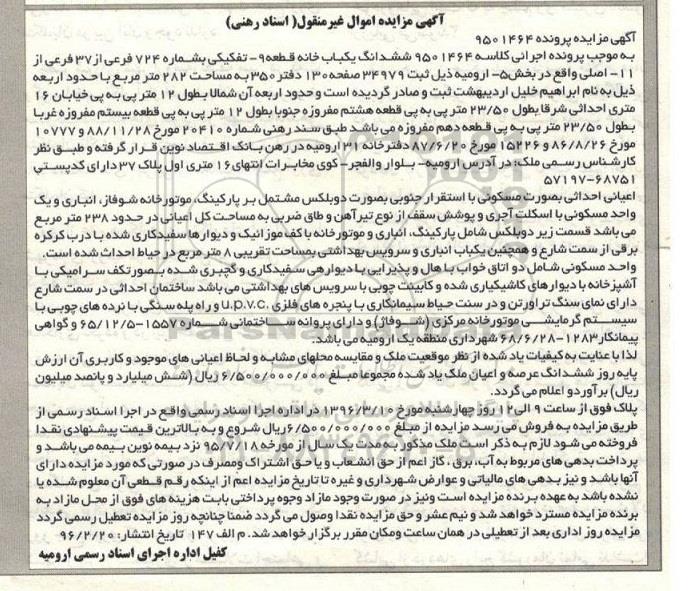 آگهی مزایده اموال غیرمنقول( اسناد رهنی)
آگهی مزایده پرونده ۹۵۰۱۴۶۴
به موجب پرونده اجرائی کلاسه ۹۵۰۱۴۶۴ ششدانگ یکباب خانه قطعه۹- تفکیکی بشماره ۷۲۴ فرعی از۳۷ فرعی از
۱۱- اصلی واقع در بخش۵- ارومیه ذیل ثبت ۳۴۹۷۹ صفحه ۱۳۰ دفتر ۳۵۰ به مساحت ۲۸۲ متر مربع با حدود اربعه
ذیل به نام ابراهیم خلیل اردیبهشت ثبت و صادر گردیده است و حدود اربعه آن شمالا بطول ۱۲ متر پی به پی خیابان ۱۶
متری احداثی شرقا بطول ۲۳/۵۰ متر پی به پی قطعه هشتم مفروزه جنوبا بطول ۱۲ متر پی به پی قطعه بیستم مفروزه غربا
بطول ۲۳/۵۰ متر پی به پی قطعه دهم مفروزه می باشد طبق سند رهنی شماره ۲۰۴۱۰ مورخ ۸۸/۱۱/۲۸ و ۱۰۷۷۷
مورخ ۸۶/۸/۲۶ و ۱۵۲۲۶ مورخ ۸۷/۶/۲۰ دفترخانه ۳۱ ارومیه در رهن بانک اقتصاد نوین قرار گرفته و طبق نظر
کارشناس رسمی ملک: در آدرس ارومیه- بلوار والفجر- کوی مخابرات انتهای ۱۶ متری اول پلاک ۳۷ دارای کدپستی
۵۷۱۹۷-۶۸۷۵۱
اعیانی احداثی بصورت مسکونی با استقرار جنوبی بصورت دوبلکس مشتمل بر پارکینگ، موتورخانه شوفاژ، انباری و یک
واحد مسکونی با اسکلت آجری و پوشش سقف از نوع تیرآهن و طاق ضربی به مساحت کل اعیانی در حدود ۲۳۸ متر مربع
می باشد قسمت زیر دوبلکس شامل پارکینگ، انباری و موتورخانه با کف موزائیک و دیوارها سفیدکاری شده با درب کرکره
برقی از سمت شارع و همچنین یکباب انباری و سرویس بهداشتی بمساحت تقریبی ۸ متر مربع در حیاط احداث شده است.
واحد مسکونی شامل دو اتاق خواب با هال و پذیرایی با دیوارهی سفیدکاری و گچبری شده بصورتکف سرامیکی با
آشپزخانه با دیوارهای کاشیکاری شده و کابینت چوبی با سرویس های بهداشتی می باشد ساختمان احداثی در سمت شارع
دارای نمای سنگ تراورتن و در سنت حیاط سیمانکاری با پنجره های فلزی u.p.v.c و راه پله سنگی با نرده های چوبی با
سیستم گرمایشی موتورخانه مرکزی (شوفاژ) و دارای پروانه ساختمانی شماره ۱۵۵۷-۶۵/۱۲/۵ و گواهی
پیمانکار ۱۲۸۳-۶۸/۶/۲۸ شهرداری منطقه یک ارومیه می باشد.
لذا با عنایت به کیفیات یاد شده از نظر موقعیت ملک و مقایسه محلهای مشابه و لحاظ اعیانی های موجود و کاربری آن ارزش
پایه روز ششدانگ عرصه و اعیان ملک یاد شده مجموعا مبلغ ۶/۵۰۰/۰۰۰/۰۰۰ ریال (شش میلیارد و پانصد میلیون
ریال) برآوردو اعلام می گردد.
پلاک فوق از ساعت ۹ الی۱۲ روز چهارشنبه مورخ ۱۳۹۶/۳/۱۰ در اداره اجرا اسناد رسمی واقع در اجرا اسناد رسمی از
طریق مزایده به فروش می رسد مزایده از مبلغ ۶/۵۰۰/۰۰۰/۰۰۰ریال شروع و به بالاترین قیمت پیشنهادی نقدا
فروخته می شود لازم به ذکر است ملک مذکور به مدت یک سال از مورخه ۹۵/۷/۱۸ نزد بیمه نوین بیمه می باشد و
پرداخت بدهی های مربوط به آب، برق ، گاز اعم از حق انشعاب و یا حق اشتراک ومصرف در صورتی که مورد مزایده دارای
آنها باشد و نیز بدهی های مالیاتی و عوارض شهرداری و غیره تا تاریخ مزایده اعم از اینکه رقم قطعی آن معلوم شده یا
نشده باشد به عهده برنده مزایده است ونیز در صورت وجود مازاد وجوه پرداختی بابت هزینه های فوق از محل مازاد به
برنده مزایده مسترد خواهد شد و نیم عشر و حق مزایده نقدا وصول می گردد ضمنا چنانچه روز مزایده تعطیل رسمی گردد
مزایده روز اداری بعد از تعطیلی در همان ساعت ومکان مقرر برگزار خواهد شد. م الف ۱۴۷ تاریخ انتشار: ۹۶/۲/۲۰
کفیل اداره اجرای اسناد رسمی ارومیه